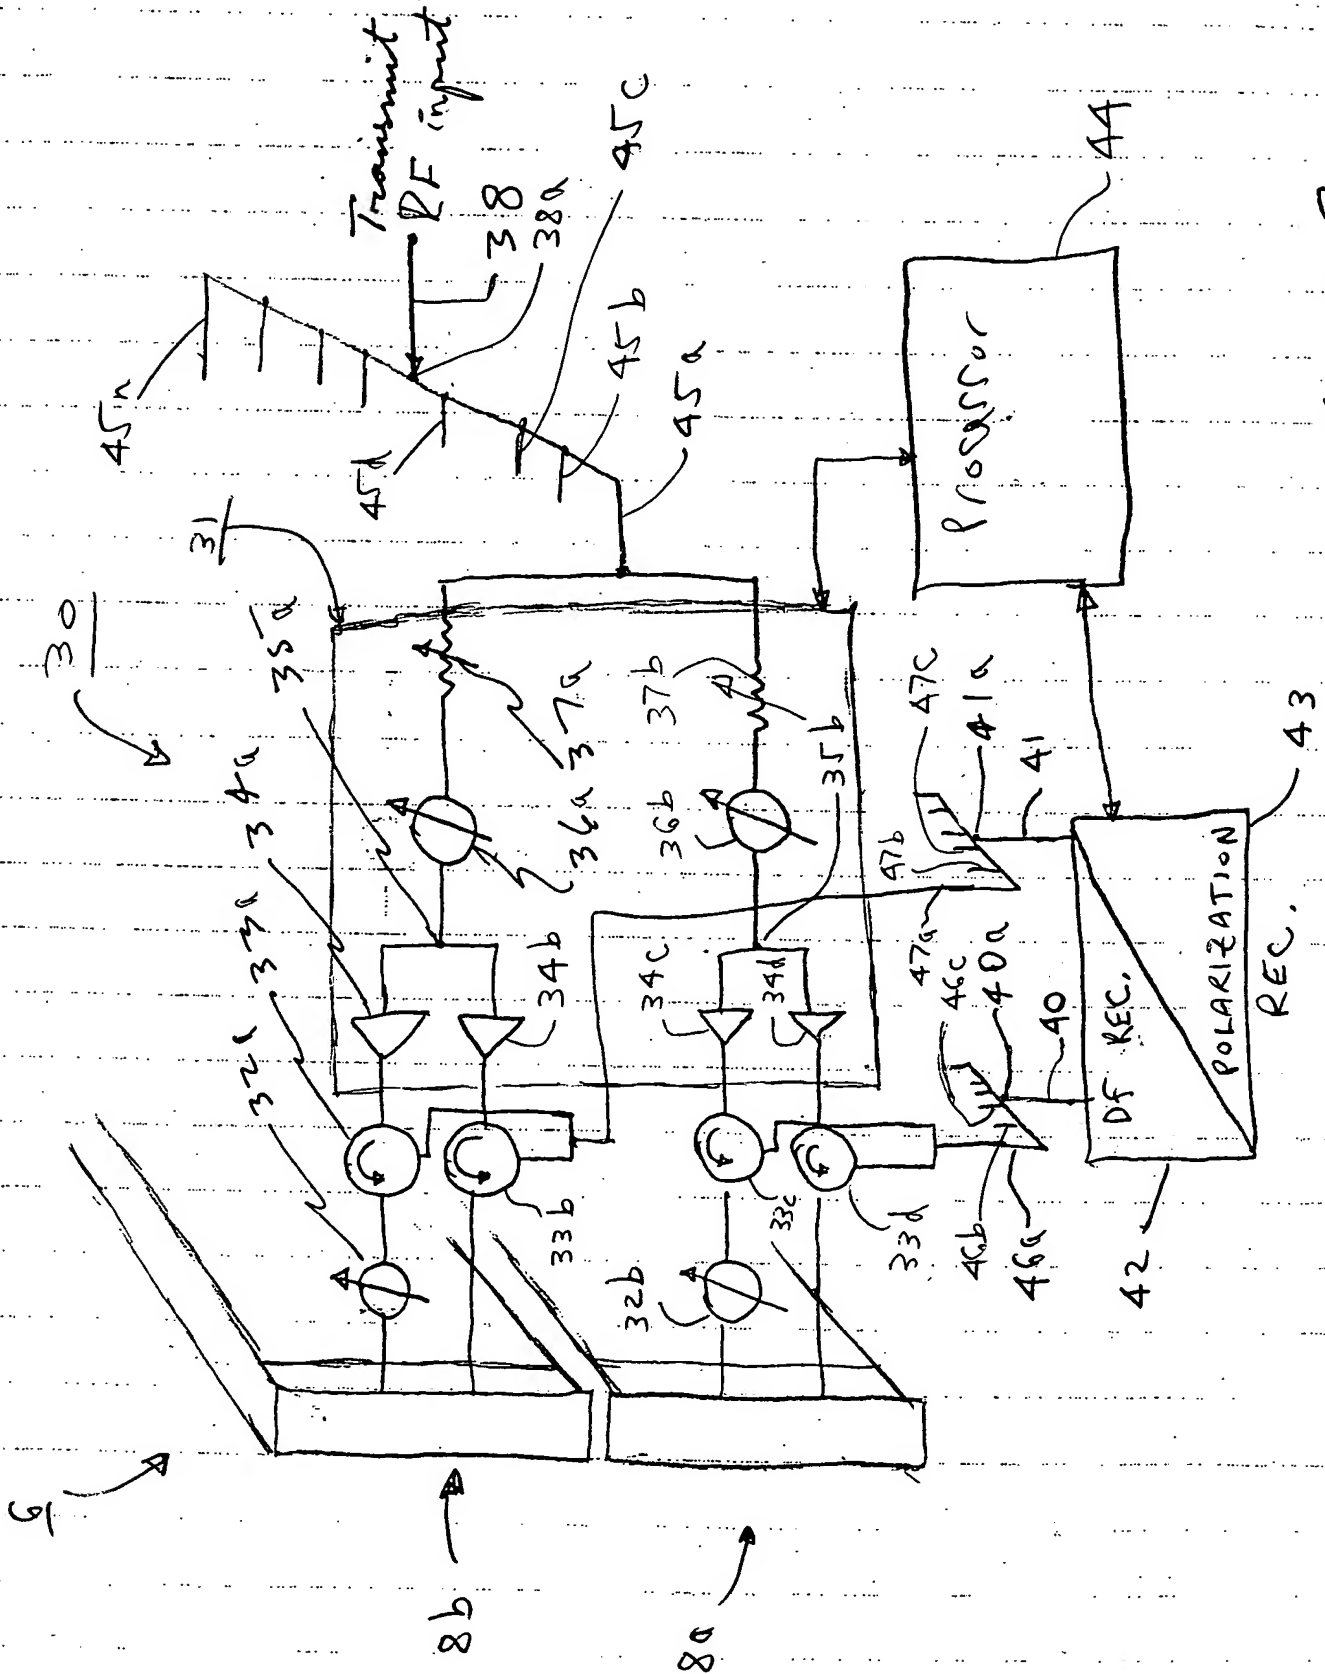 Transmit
RF input
38
38a
45c
45n
45d
45b
45a
44
Processor
31
30
35a
37a
34a
36a
36b
37b
35b
33a
34b
34c
34d
32a
33b
33c
33d
32b
47c
41a
47b
41
47a
46c
40a
40
46b
46a
DF REC.
POLARIZATION
REC.
43
42
6
8b
8a